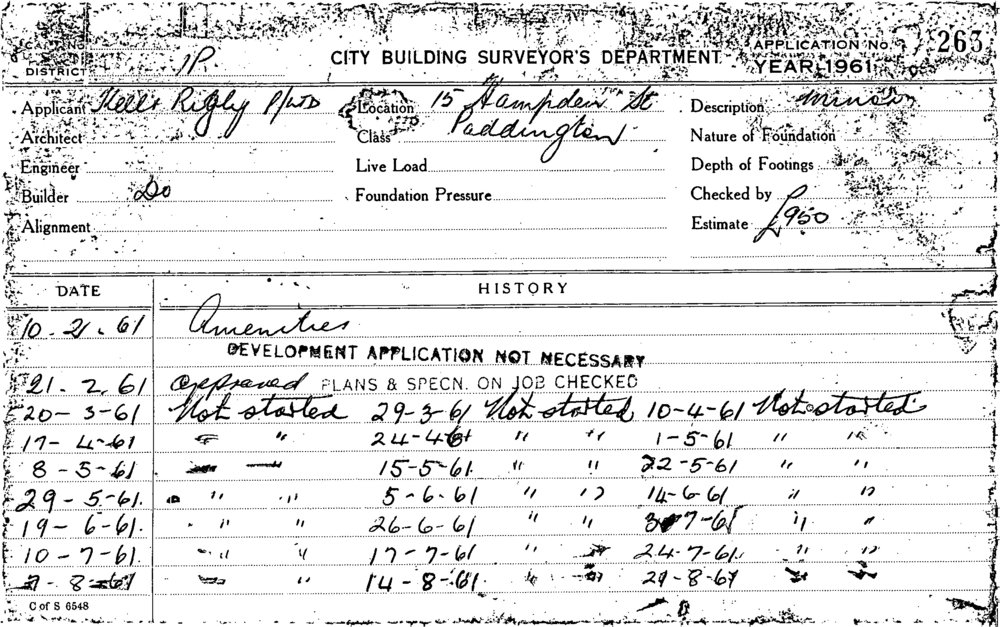 CITY BUILDING SURVEYOR'S DEPARTMENT
DISTRICT
APPLICATION No. 263
YEAR 1961
Applicant Kells Rigby P/LTD
Location 15 Hampden St
Description minor
Architect
Class Paddington
Nature of Foundation
Engineer
Live Load
Depth of Footings
Builder Do
Foundation Pressure
Checked by
Alignment
Estimate £950
DATE HISTORY
10-2-61 Amenities
DEVELOPMENT APPLICATION NOT NECESSARY
21.2.61 approved PLANS & SPECN. ON JOB CHECKED
20-3-61 Not started 29-3-61 Not started 10-4-61 Not started
17-4-61 " " 24-4-61 " " 1-5-61 " "
8-5-61 15-5-61 " " 22-5-61 " "
29-5-61. " " 5-6-61 " " 14-6-61 " "
19-6-61. " " 26-6-61 " " 3-7-61 " "
10-7-61. " " 17-7-61 " 24-7-61. " "
8-61 " 14-8-61. " 8-61
C of S 6548